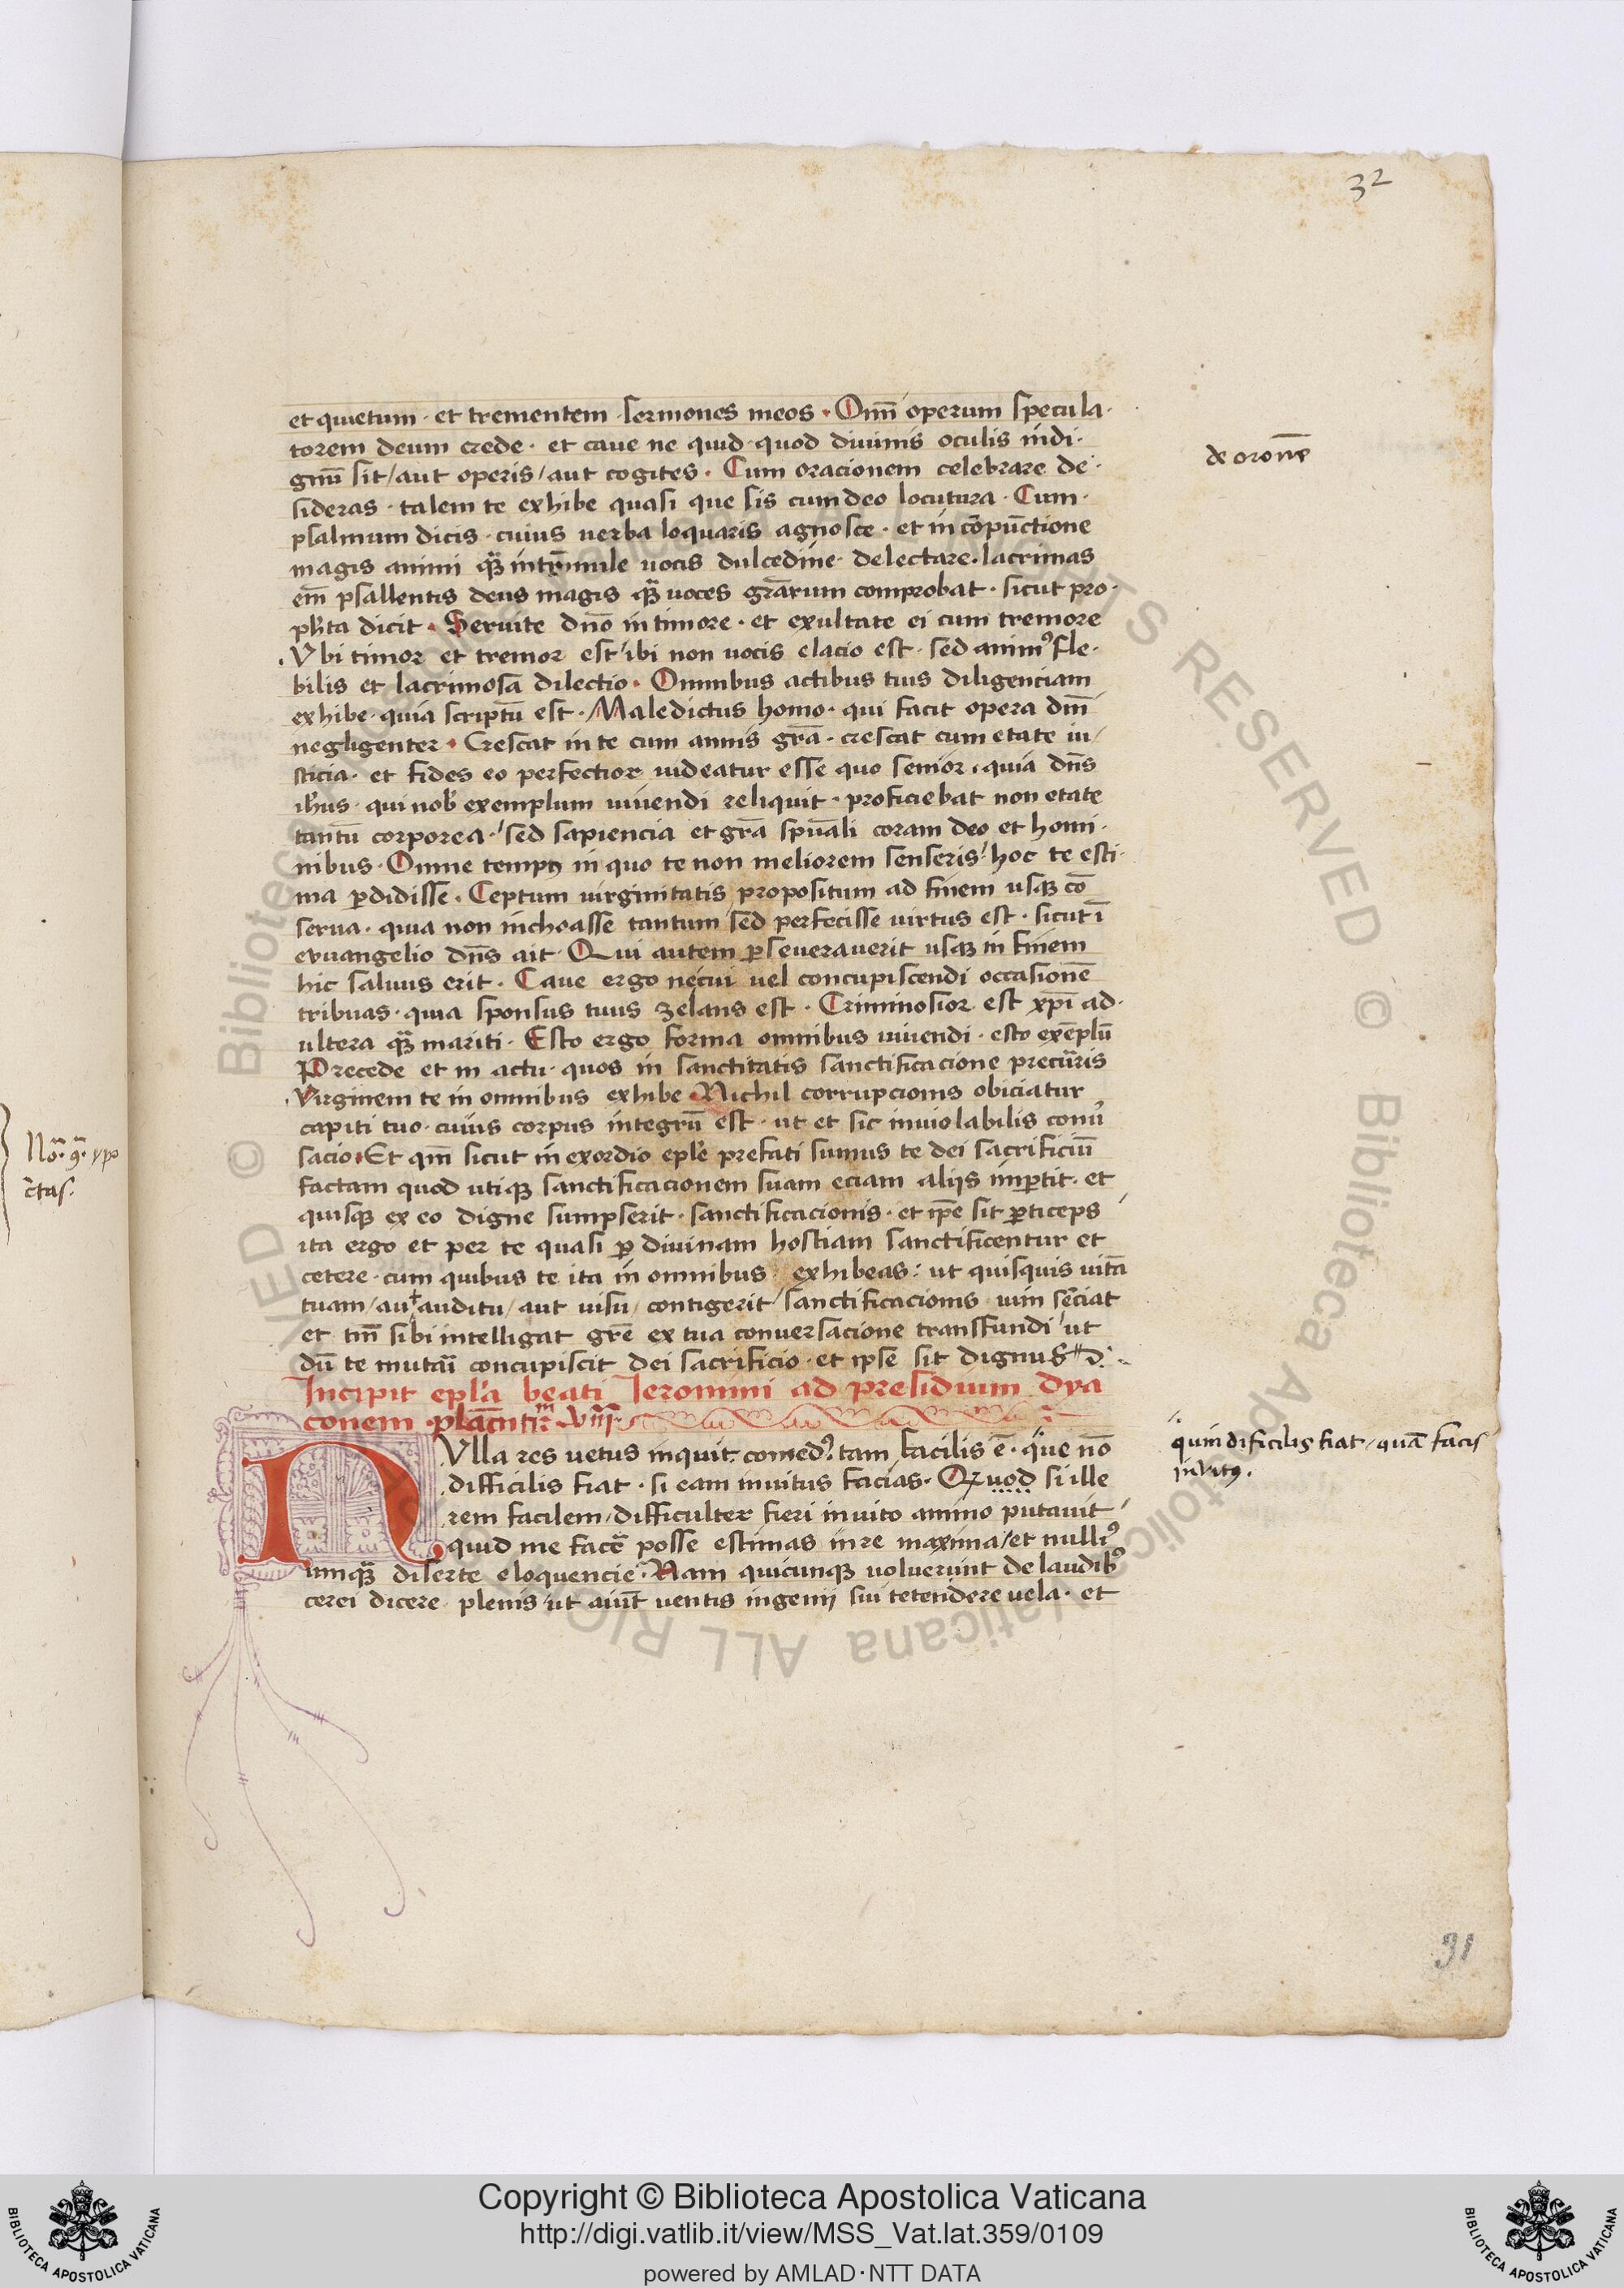 32
et quietum · et trementem sermones meos · Om̄ operum specula·
torem deum crede · et caue ne quid quod diuinis oculis indi·
gnū sit / aut operis / aut cogites · Cum oracionem celebrare de·
sideras · talem te exhibe quasi que sis cum deo locutura · Cum·
psalmum dicis · cuius uerba loquaris agnosce · et in cōpūctione
magis animi quā uocis dulcedine delectare · lacrimas
em̄ psallentis deus magis quā uoces grārum comprobat · sicut pro·
phta dicit · Seruite dn̄o in timore · et exultate ei cum tremore
Vbi timor et tremor est / ibi non uocis elacio est · sed animꝰ fle·
bilis et lacrimosa dilectio · Omnibus actibus tuis diligenciam
exhibe · quia scriptū est · Maledictus homo · qui facit opera dm̄
negligenter · Crescat in te cum annis grā · crescat cum etate iu/
sticia · et fides eo perfectior uideatur esse quo senior · quia dn̄s
ihus · qui nob̓ exemplum uiuendi reliquit · proficiebat non etate
tantū corporea · sed sapiencia et grā spūali coram deo et homi·
nibus · Omne tempꝰ in quo te non meliorem senseris / hoc te esti·
ma ꝑdidisse · Ceptum uirginitatis propositum ad finem usqꝫ cō
serua · quia non inchoasse tantum sed perfecisse uirtus est · sicut ī
euuangelio dn̄s ait · Qui autem ꝑseuerauerit usqꝫ in finem
hic saluus erit · Caue ergo necui uel concupiscendi occasionē
tribuas · quia sponsus tuus zelans est · Criminosior est xp̄i ad·
ultera quā mariti · Esto ergo forma omnibus uiuendi · esto exēplū
Precede et in actu · quos in sanctitatis sanctificacione
Virginem te in omnibus exhibe · Nichil corrupcionis obiciatur
capiti tuo · cuius corpus integrū est · ut et sic inuiolabilis conũ
sacio · Et qm̄ sicut in exordio epl̄e prefati sumus te dei sacrificiū
factam quod utiqꝫ sanctificacionem suam eciam aliis imꝑtit · et
quisqꝫ ex eo digne sumpserit · sanctificacionis · et ip̄e sit ꝑticeps
ita ergo et per te quasi ꝑ diuinam hostiam sanctificentur et
cetere · cum quibus te ita in omnibus exhibeas : ut quisquis uitā
tuam / aut auditu / aut uisu / contigerit / sanctificacionis uim sēciat
et tm̄ sibi intelligat grē ex tua conuersacione transfundi / ut
dū te concupiscit dei sacrificio · et ipse sit dignus
Incipit epl̄a beati Ieronimi ad presidium dya
conem placentinū VIII
de oronē
NVlla res uetus inquit comedꝰ tam facilis ē · que nō
difficilis fiat · si eam inuitus facias · Quod si ille
rem facilem / difficulter fieri inuito animo putauit /
quid me facē posse estimas in re maxima / et nulliꝰ
umquā diserte eloquencie · Nam quicunqꝫ uoluerunt de laudibꝰ
cerei dicere plenis / ut aiūt uentis ingenij sui tetendere uela · et
quin dificilis fiat / quā facis
inuitꝰ.
31
No
ctas.
Copyright © Biblioteca Apostolica Vaticana
http://digi.vatlib.it/view/MSS_Vat.lat.359/0109
powered by AMLAD·NTT DATA
BIBLIOTECA APOSTOLICA VATICANA
BIBLIOTECA APOSTOLICA VATICANA